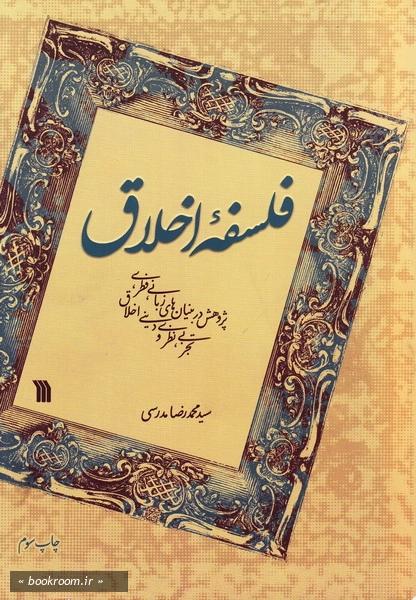 فلسفهٔ اخلاق
پژوهش در بنیان‌های زبانی، فطری،
تجربی، نظری و دینی اخلاق
سید محمدرضا مدرسی
چاپ سوم
« bookroom.ir »